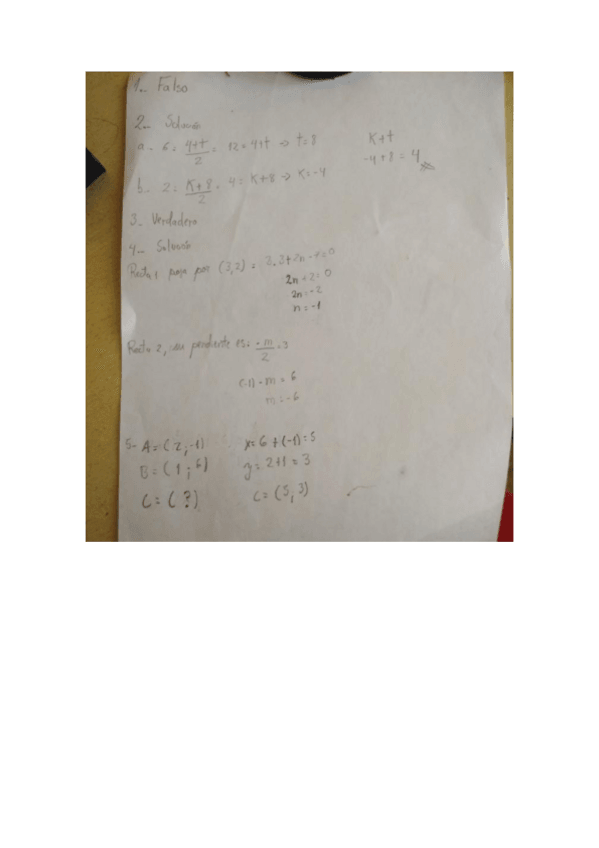 1.- Falso
2.- Solución
a - 6 = 4+t/2 = 12 = 4+t → t = 8
K+t
-4+8 = 4
b. 2 = K+8/2 = 4 = K+8 → K = -4
3. Verdadero
4.- Solución
Recta 1 pasa por (3,2) = 2.3+2n-4=0
2n+2=0
2n=-2
n=-1
Recta 2, su pendiente es: -m/2 = 3
(-1) -m = 6
m = -6
5- A = (2,-1) x = 6+(-1) = 5
B = (1,6) y = 2+1 = 3
C = (?) C = (5,3)